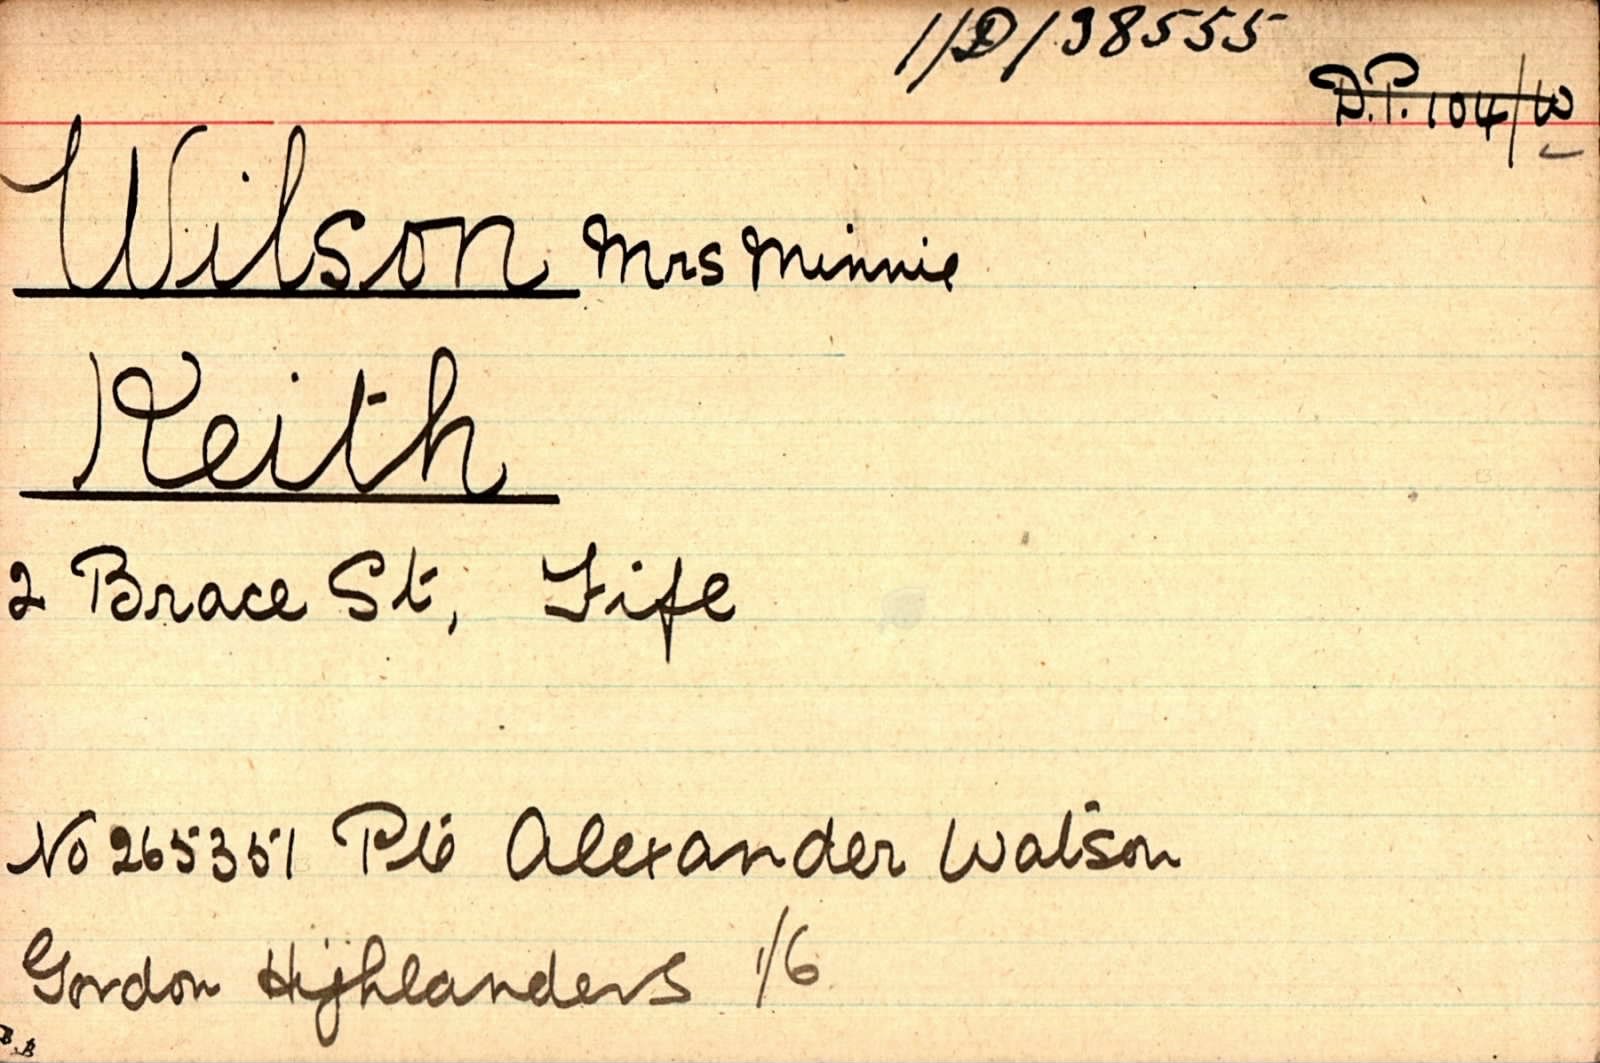 1/D/38555
D.P. 104/W
Wilson Mrs Minnie
Keith
2 Brace St, Fife
No 265351 Pte Alexander Watson
Gordon Highlanders 1/6
B.B